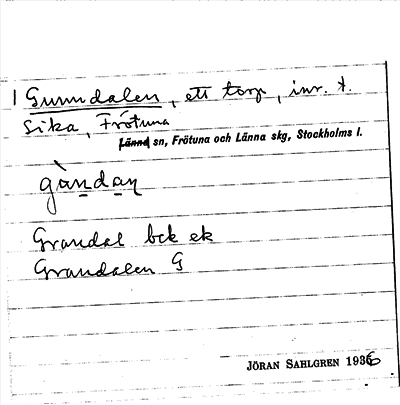 1 Grandalen, ett torp, inr. t.
Sika, Frötuna
Länna sn, Frötuna och Länna skg, Stockholms l.
gàndan
Grandal bck ek
Grandalen G
JÖRAN SAHLGREN 1936